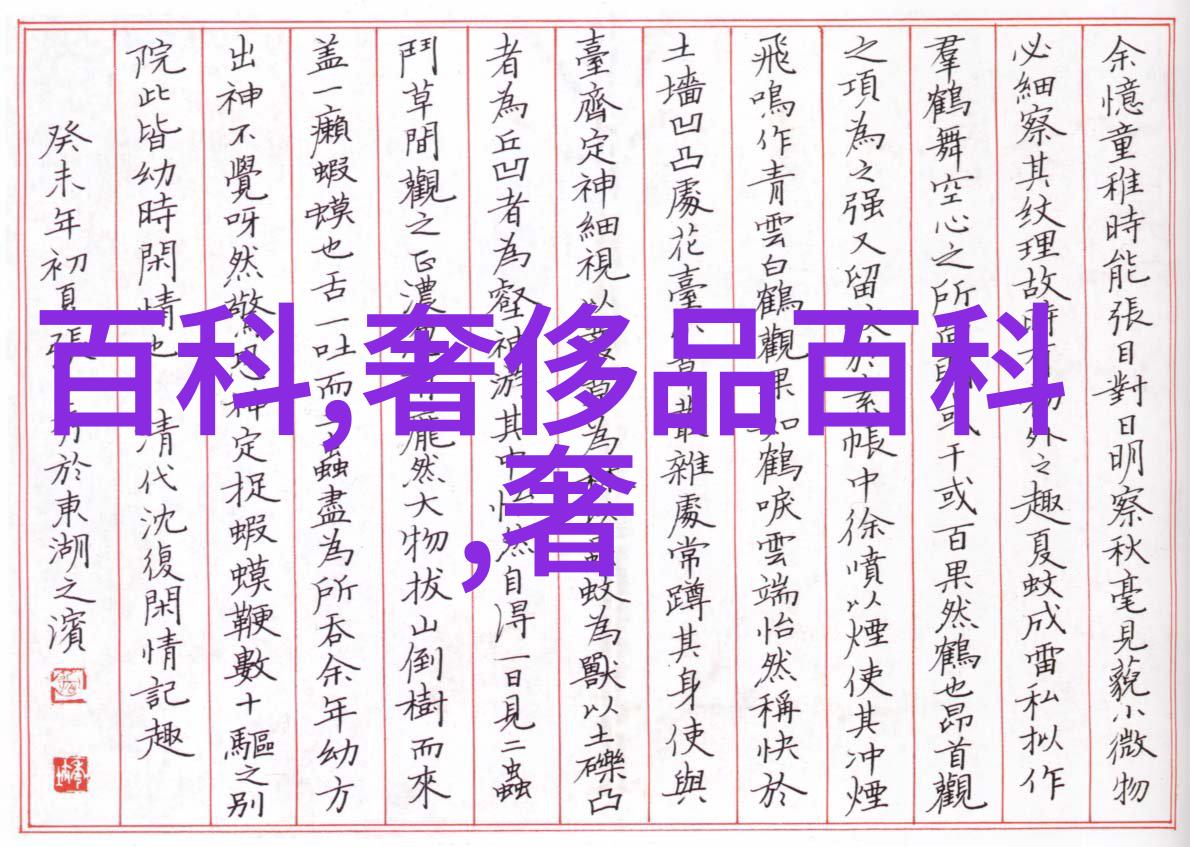 余憶童稚時能張目對日明察秋毫見藐小微物
必細察其纹理故時有物外之趣夏蚊成雷私拟作
羣鶴舞空心之所或千或百果然鶴也昂首觀
之項為之强又留蚊於素帳中徐噴以煙使其冲煙
飛鳴作青雲白鶴觀果如鶴唳雲端怡然稱快於
土墻凹凸處花臺草叢雜處常蹲其身使與
臺齊定神細視以叢草為林以蟲蚁為獸以土礫凸
者為丘凹者為壑神游其中怡然自得一日見二蟲
鬥草間觀之正濃有龐然大物拔山倒樹而來
盖一癩蝦蟆也舌一吐而二蟲盡為所吞余年幼方
出神不覺呀然驚恐神定捉蝦蟆鞭數十驅之别
院此皆幼時閑情也 清代沈復閑情記趣
癸未年初夏張於東湖之濱
百科,奢侈品百科
,奢